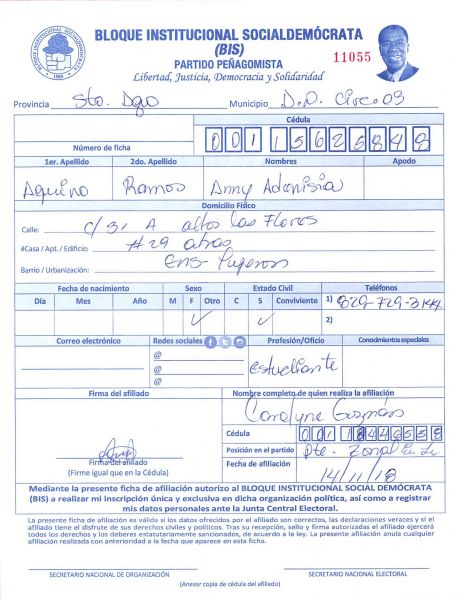 BLOQUE INSTITUCIONAL SOCIALDEMÓCRATA
(BIS)
PARTIDO PEÑAGOMISTA
Libertad, Justicia, Democracia y Solidaridad
11055
Provincia Sto. Dgo Municipio D.N. Circ. 03
Cédula
Número de ficha
1er. Apellido 2do. Apellido Nombres Apodo
Aquino Ramos Anny Adonisia
Domicilio Físico
Calle: C/ 31 A altos las Flores
#Casa / Apt. / Edificio: #29 atras
Barrio / Urbanización: Ens-
Fecha de nacimiento Sexo Estado Civil Teléfonos
Día Mes Año M F Otro C S Conviviente 1) 829-729-3144
2)
Correo electrónico Redes sociales Profesión/Oficio Conocimientos especiales
@
@
@
estudiante
Firma del afiliado Nombre completo de quien realiza la afiliación
Carolyne Guzmán
Cédula
Posición en el partido Pte. Zonal
Firma del afiliado
(Firme igual que en la Cédula)
Fecha de afiliación 14/11/18
Mediante la presente ficha de afiliación autorizo al BLOQUE INSTITUCIONAL SOCIAL DEMÓCRATA
(BIS) a realizar mi inscripción única y exclusiva en dicha organización política, así como a registrar
mis datos personales ante la Junta Central Electoral.
La presente ficha de afiliación es válida si los datos ofrecidos por el afiliado son correctos, las declaraciones veraces y si el
afiliado tiene el disfrute de sus derechos civiles y políticos. Tras su recepción, sello y firma autorizadas el afiliado ejercerá
todos los derechos y los deberes estatutariamente sancionados, de acuerdo a la ley. La presente afiliación anula cualquier
afiliación realizada con anterioridad a la fecha que aparece en esta ficha.
SECRETARIO NACIONAL DE ORGANIZACIÓN SECRETARIO NACIONAL ELECTORAL
(Anexar copia de cédula del afiliado)